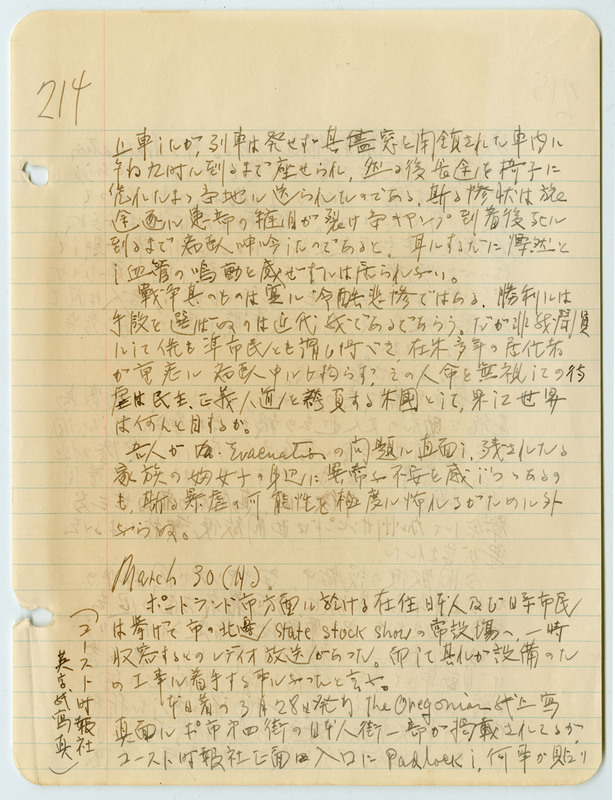 214
止車したが、列車は発せず其儘窓を閉鎖されたる車内に
午后九時に到るまで座せられ、然る後長途を椅子に
依れたまゝ当地に送られたのである。斯る惨状は旅
途遂に患部の縫目が裂け当キャンプ到着後死に
到るまで 呻吟したのであると、耳にするだに慄然と
し血管の鳴動を感ぜずには居られない。
戦争其ものは更に冷酷悲惨ではある。勝利には
手段を選ばぬのは近代戦であるであらう。だが非戦闘員
にして俤も準市民とも謂し得べき在米多年の居住者
が 中にも拘らず、その人命を無視しての待
虐は民主、正義人道を誇負する米國として、果して世界
は何んと目するか。
吾人が Evacuationの問題に直面し、残されたる
家族の婦女子の身辺に異常な不安を感じつゝあるの
も、斯る暴虐の可能性を極度に怖れるがために外
ならぬ。
March 30 (月).
ポートランド市方面に於ける在住日本人及び日系市民
は挙げて市の北辺 State stock showの常設場へ、一時
収容するとのレディオ放送があった。即して其れが設備のた
めの工事に着手する事になったと言ふ。
日着の3月28日発行 the Oregonian紙上写
真面にポ市第四街の日本人街一部が掲載されてるが、
コースト時報社正面 入口に Padlockし、何事か貼り
(コースト時報社
英字紙写真)